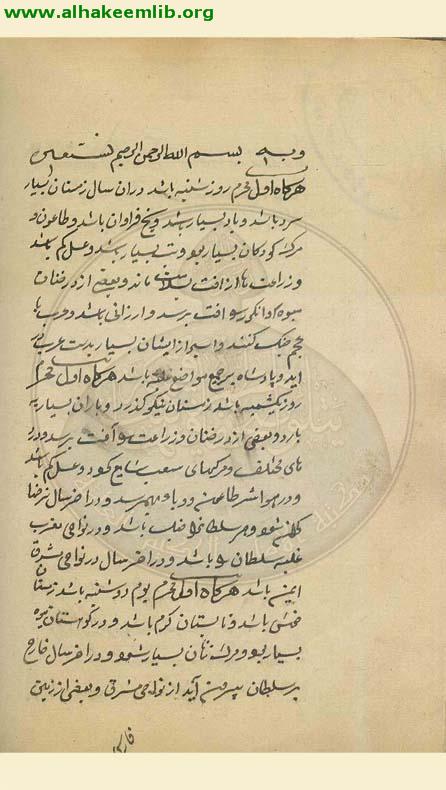 www.alhakeemlib.org
وبه بسم الله الرحمن الرحیم نستعین
هرکاه اول محرم روز شنبه باشد در ان سال زمستان بسیار
سرد باشد و باد بسیار باشد و یخ فراوان باشد و طاعون و
مرک کودکان بسیار بود وتب بسیار باشد و عسل کم باشد
و زراعت ها از افت سلامت ماند و بعضی از درختان
میوه و انکور را افت برسد و ارزانی باشد و عرب با
عجم جنک کنند و اسیر از ایشان بسیار بدست عرب در
اید و پادشاه بر جمیع مواضع باشد هرکاه اول محرم
روز یکشنبه باشد زمستان نیکو گذرد و باران بسیار
بارد و بعضی از درختان و زراعت را آفت برسد و درد
های مختلف و مرکهای صعب شایع کردد و عسل کم باشد
و در هوا طاعون و وبا بهم رسد و در اخر سال نرخها
کران شود و بر سلطان باشد و در نواحی مغرب
غلبه سلطان را باشد و در اخر سال در نواحی مشرق
ایمنی باشد هرکاه اول محرم یوم دوشنبه باشد زمستان
خوش باشد و تابستان کرم باشد و در کوهستان میوه
بسیار بود و مرک زنان بسیار شود و در اخر سال خارجی
بر سلطان بیرون آید از نواحی مشرق و بعضی از زمین
فارس